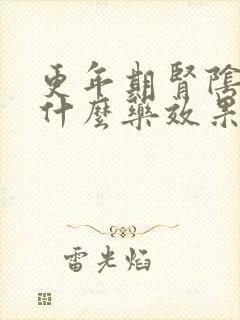 更年期腎陰
什麼藥效果
雷光焰